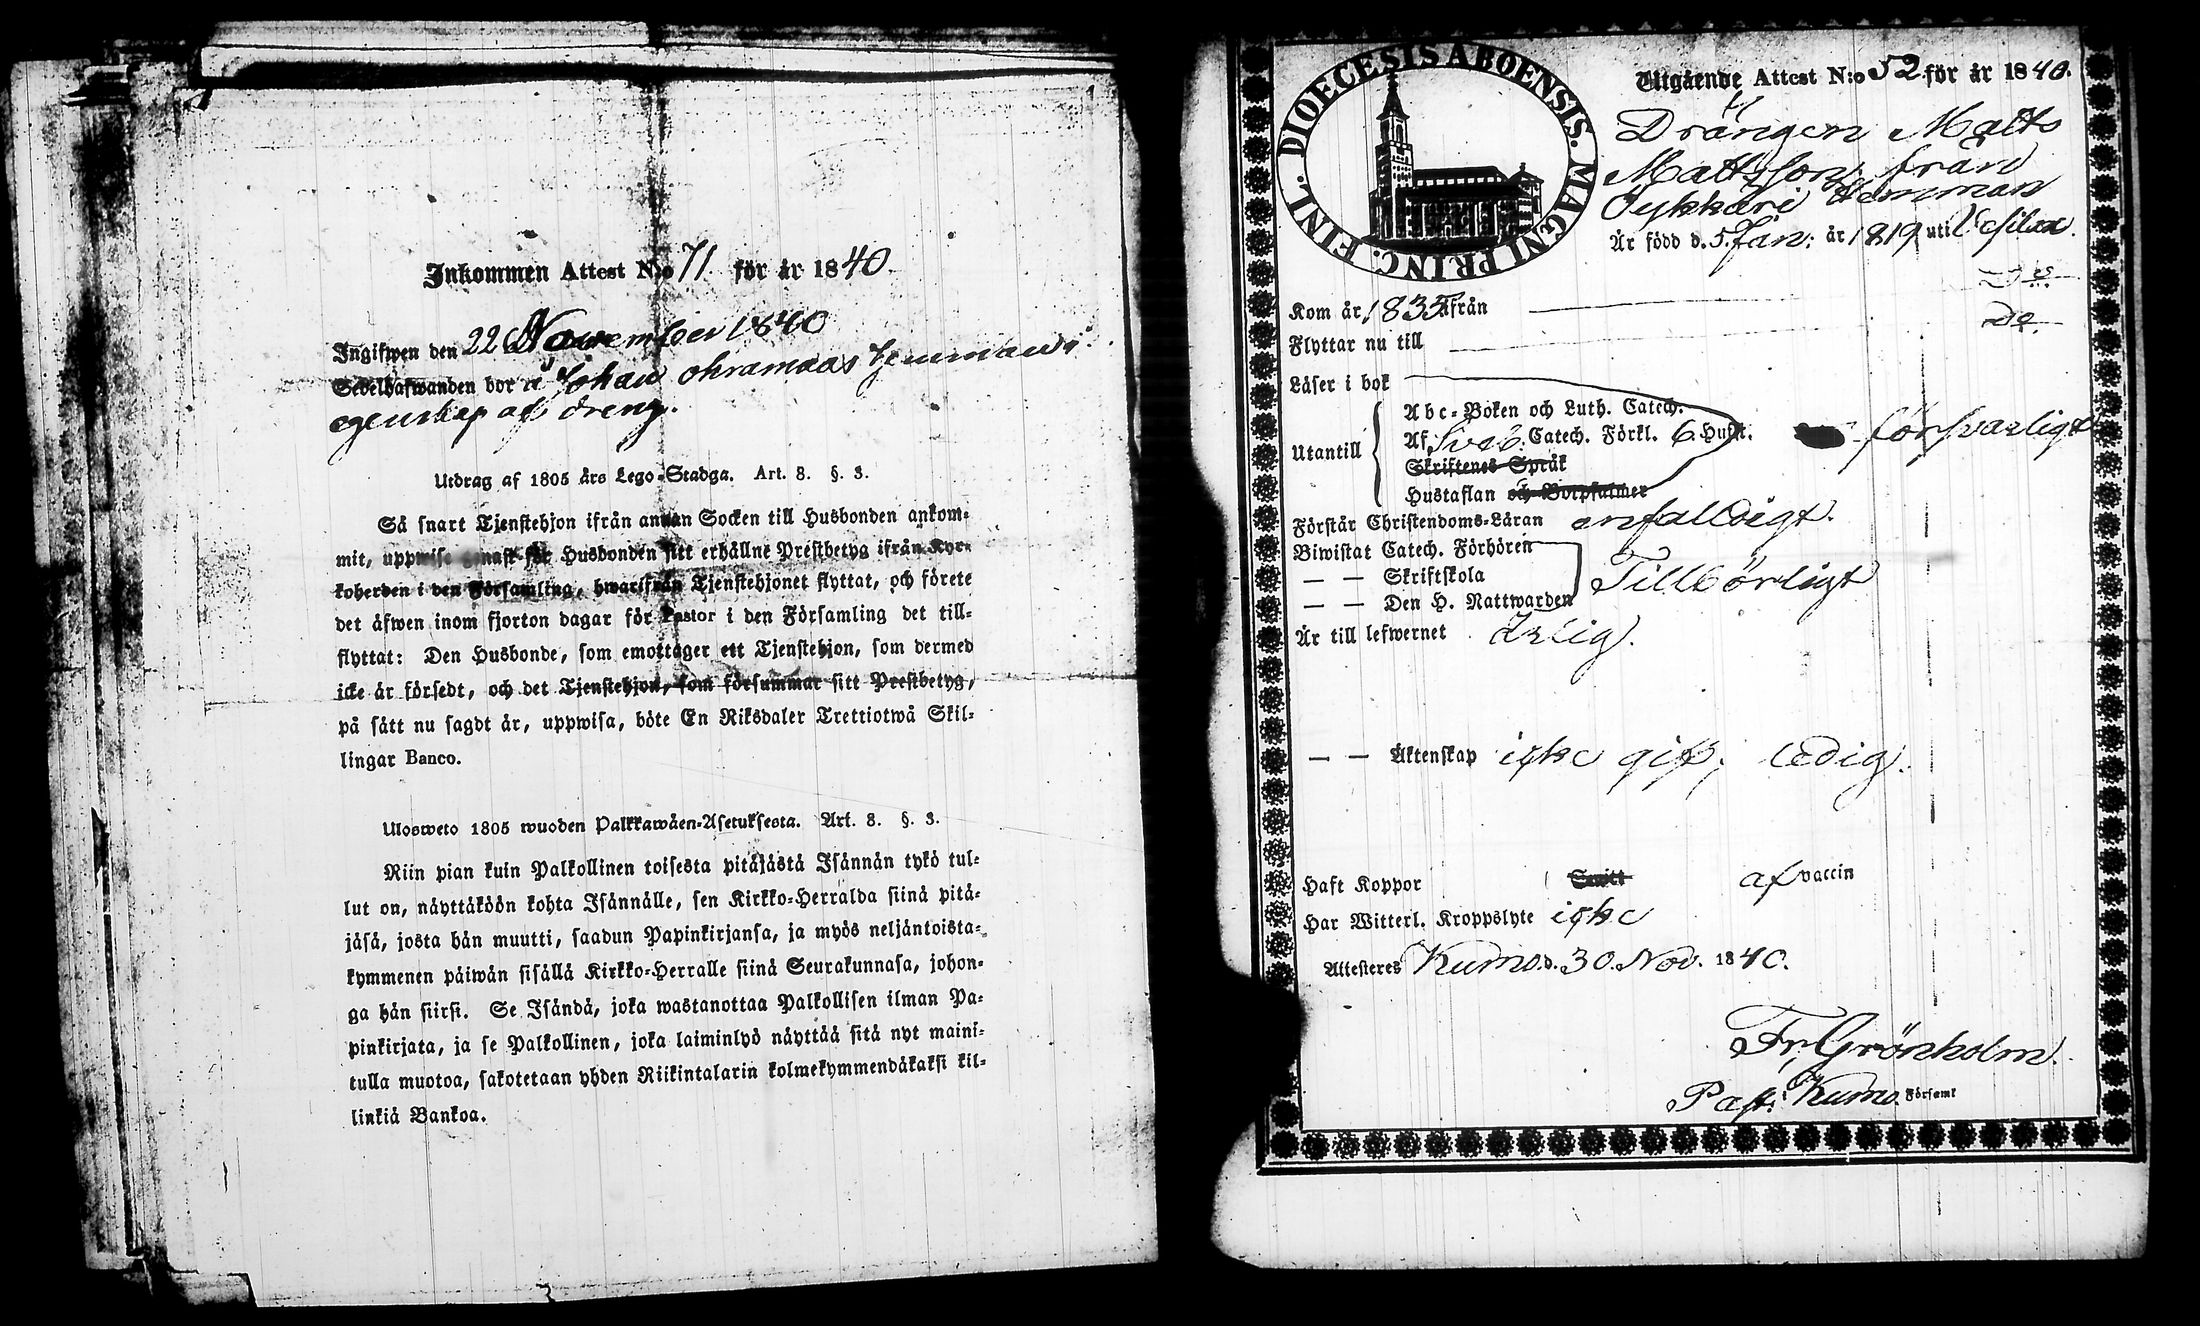 Inkommen Attest N:o 71 för år 1840.
Ingifwen den 22 November 1840
Sedelhafwanden bor å Johan ohramaas hemman i
egenskap af dreng.
Utdrag af 1805 års Lego-Stadga. Art. 8. §. 3.
Så snart Tjenstehjon ifrån annan Socken till Husbonden ankom-
mit, uppwise genast för Husbonden sitt erhållne Prestbetyg ifrån Kyr-
koherden i den Församling, hwarifrån Tjenstehjonet flyttat, och förete
det äfwen inom fjorton dagar för Pastor i den Församling det till-
flyttat: Den Husbonde, som emottager ett Tjenstehjon, som dermed
icke är försedt, och det Tjenstehjon, som försummar sitt Prestbetyg,
på sätt nu sagdt är, uppwisa, böte En Riksdaler Trettiotwå Skil-
lingar Banco.
Ulosweto 1805 wuoden Palkkawäen-Asetuksesta. Art. 8. §. 3.
Niin pian kuin Palkollinen toisesta pitäjästä Isännän tykö tul-
lut on, näyttäköön kohta Isännälle, sen Kirkko-Herralda siinä pitä-
jäsä, josta hän muutti, saadun Papinkirjansa, ja myös neljäntoista-
kymmenen päiwän sisällä Kirkko-Herralle siinä Seurakunnasa, johon-
ga hän siirsi. Se Isändä, joka wastanottaa Palkollisen ilman Pa-
pinkirjata, ja se Palkollinen, joka laiminlyö näyttää sitä nyt maini-
tulla muotoa, sakotetaan yhden Riikintalarin kolmekymmendäkaksi kil-
linkiä Bankoa.
DIOECESIS ABOENSIS. MAGNI PRINC. FINL.
Utgående Attest N:o 52 för år 1840.
Drängen Matts
Mattsson, från
Öykkäri Hemman
Är född d. 5. Jan: år 1819 uti
Kom år 1835 ifrån Do
Flyttar nu till Do
Läser i bok
Abc-Boken och Luth. Catech.
Utantill Af Sveb. Catech. Förkl. 6. Hufst. försvarligt
Skriftenes Språk
Hustaflan och Botpsalmer
Förstår Christendoms-Läran enfalldigt.
Biwistat Catech. Förhören
— — Skriftskola Tillbörligt
— — Den H. Nattwarden
Är till lefwernet Ärlig.
— — Äktenskap icke gift; ledig.
Haft Koppor Smitt af vaccin
Har Witterl. Kroppslyte icke
Attesteres Kumo. d. 30. Nov. 1840.
Fr. Grönholm.
Past. i Kumo. Församl